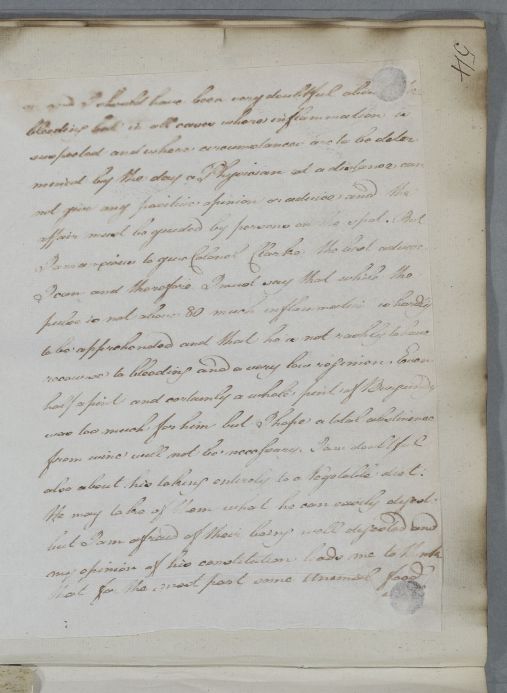 54
and I should have been very doubtful about
bleeding but in all cases where inflammation is
suspected and where circumstances are to be deter
mined by the day a Physician at a distance can
not give any positive opinion or advice and the
affair must be guided by persons on the spot. But
I am anxious to give Colonel Clarke the best advice
I can and therefore I must say that while the
pulse is not above 80 much inflammation is hardly
to be apprehended and that he is not rashly to have
recourse to bleeding and a very low regimen. Even
half a pint and certainly a whole pint of Burgundy
was too much for him but I hope a total abstinence
from wine will not be necessary. I am doubtful
also about his taking entirely to a Vegetable diet.
He may take of them what he can easily digest.
but I am afraid of their being well digested and
my opinion of his constitution leads me to think
that for the most part some Animal food